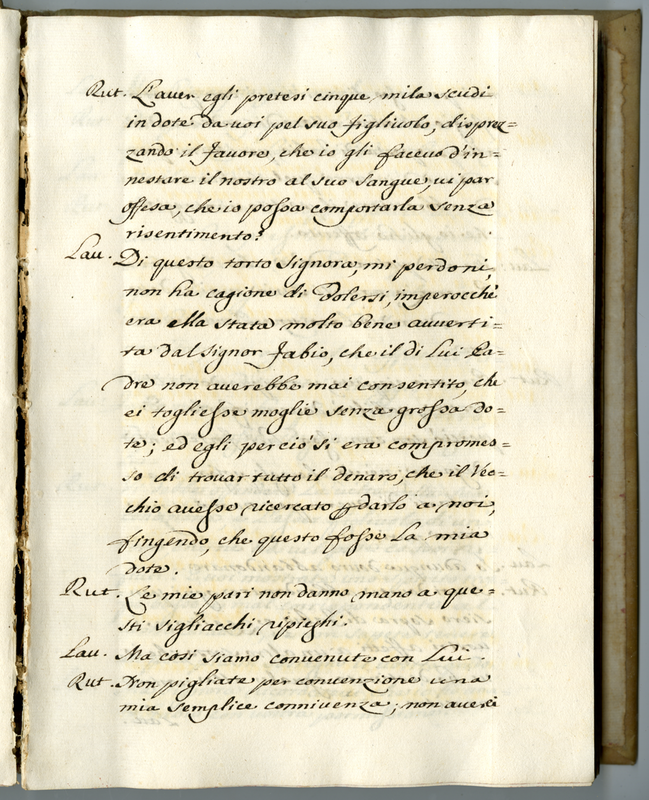 Rut. L'aver egli pretesi cinque mila scudi
in dote da voi pel suo figliuolo, disprez=
zando il favore, che io gli facevo d'in=
nestare il nostro al suo sangue, vi par
offesa, che io possa comportarla senza
risentimento?
Lau. Di questo torto Signora, mi perdoni,
non ha cagione di dolersi, imperocchè
era ella stata molto bene avverti=
ta dal Signor Fabio, che il di Lui Pa=
dre non averebbe mai consentito, che
ei togliesse moglie senza grossa do=
te; ed egli perciò si era compromes=
so di trovar tutto il denaro, che il Vec=
chio avesse ricercato p darlo a noi,
fingendo, che questo fosse La mia
dote.
Rut. Le mie pari non danno mano a que=
sti vigliacchi ripieghi.
Lau. Ma così siamo convenute con Lui.
Rut. Non pigliate per convenzione una
mia semplice connivenza; non averei